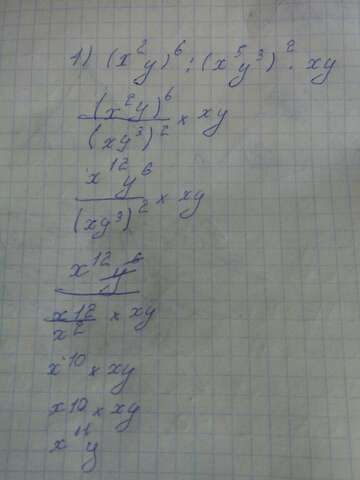 1) (x²y)⁶ : (x⁵y³)² · xy
(x²y)⁶ / (xy³)² × xy
x¹² y⁶ / (xy³)² × xy
x¹² y⁶
x12 / x² × xy
x¹⁰ × xy
x10 × xy
x¹¹ y